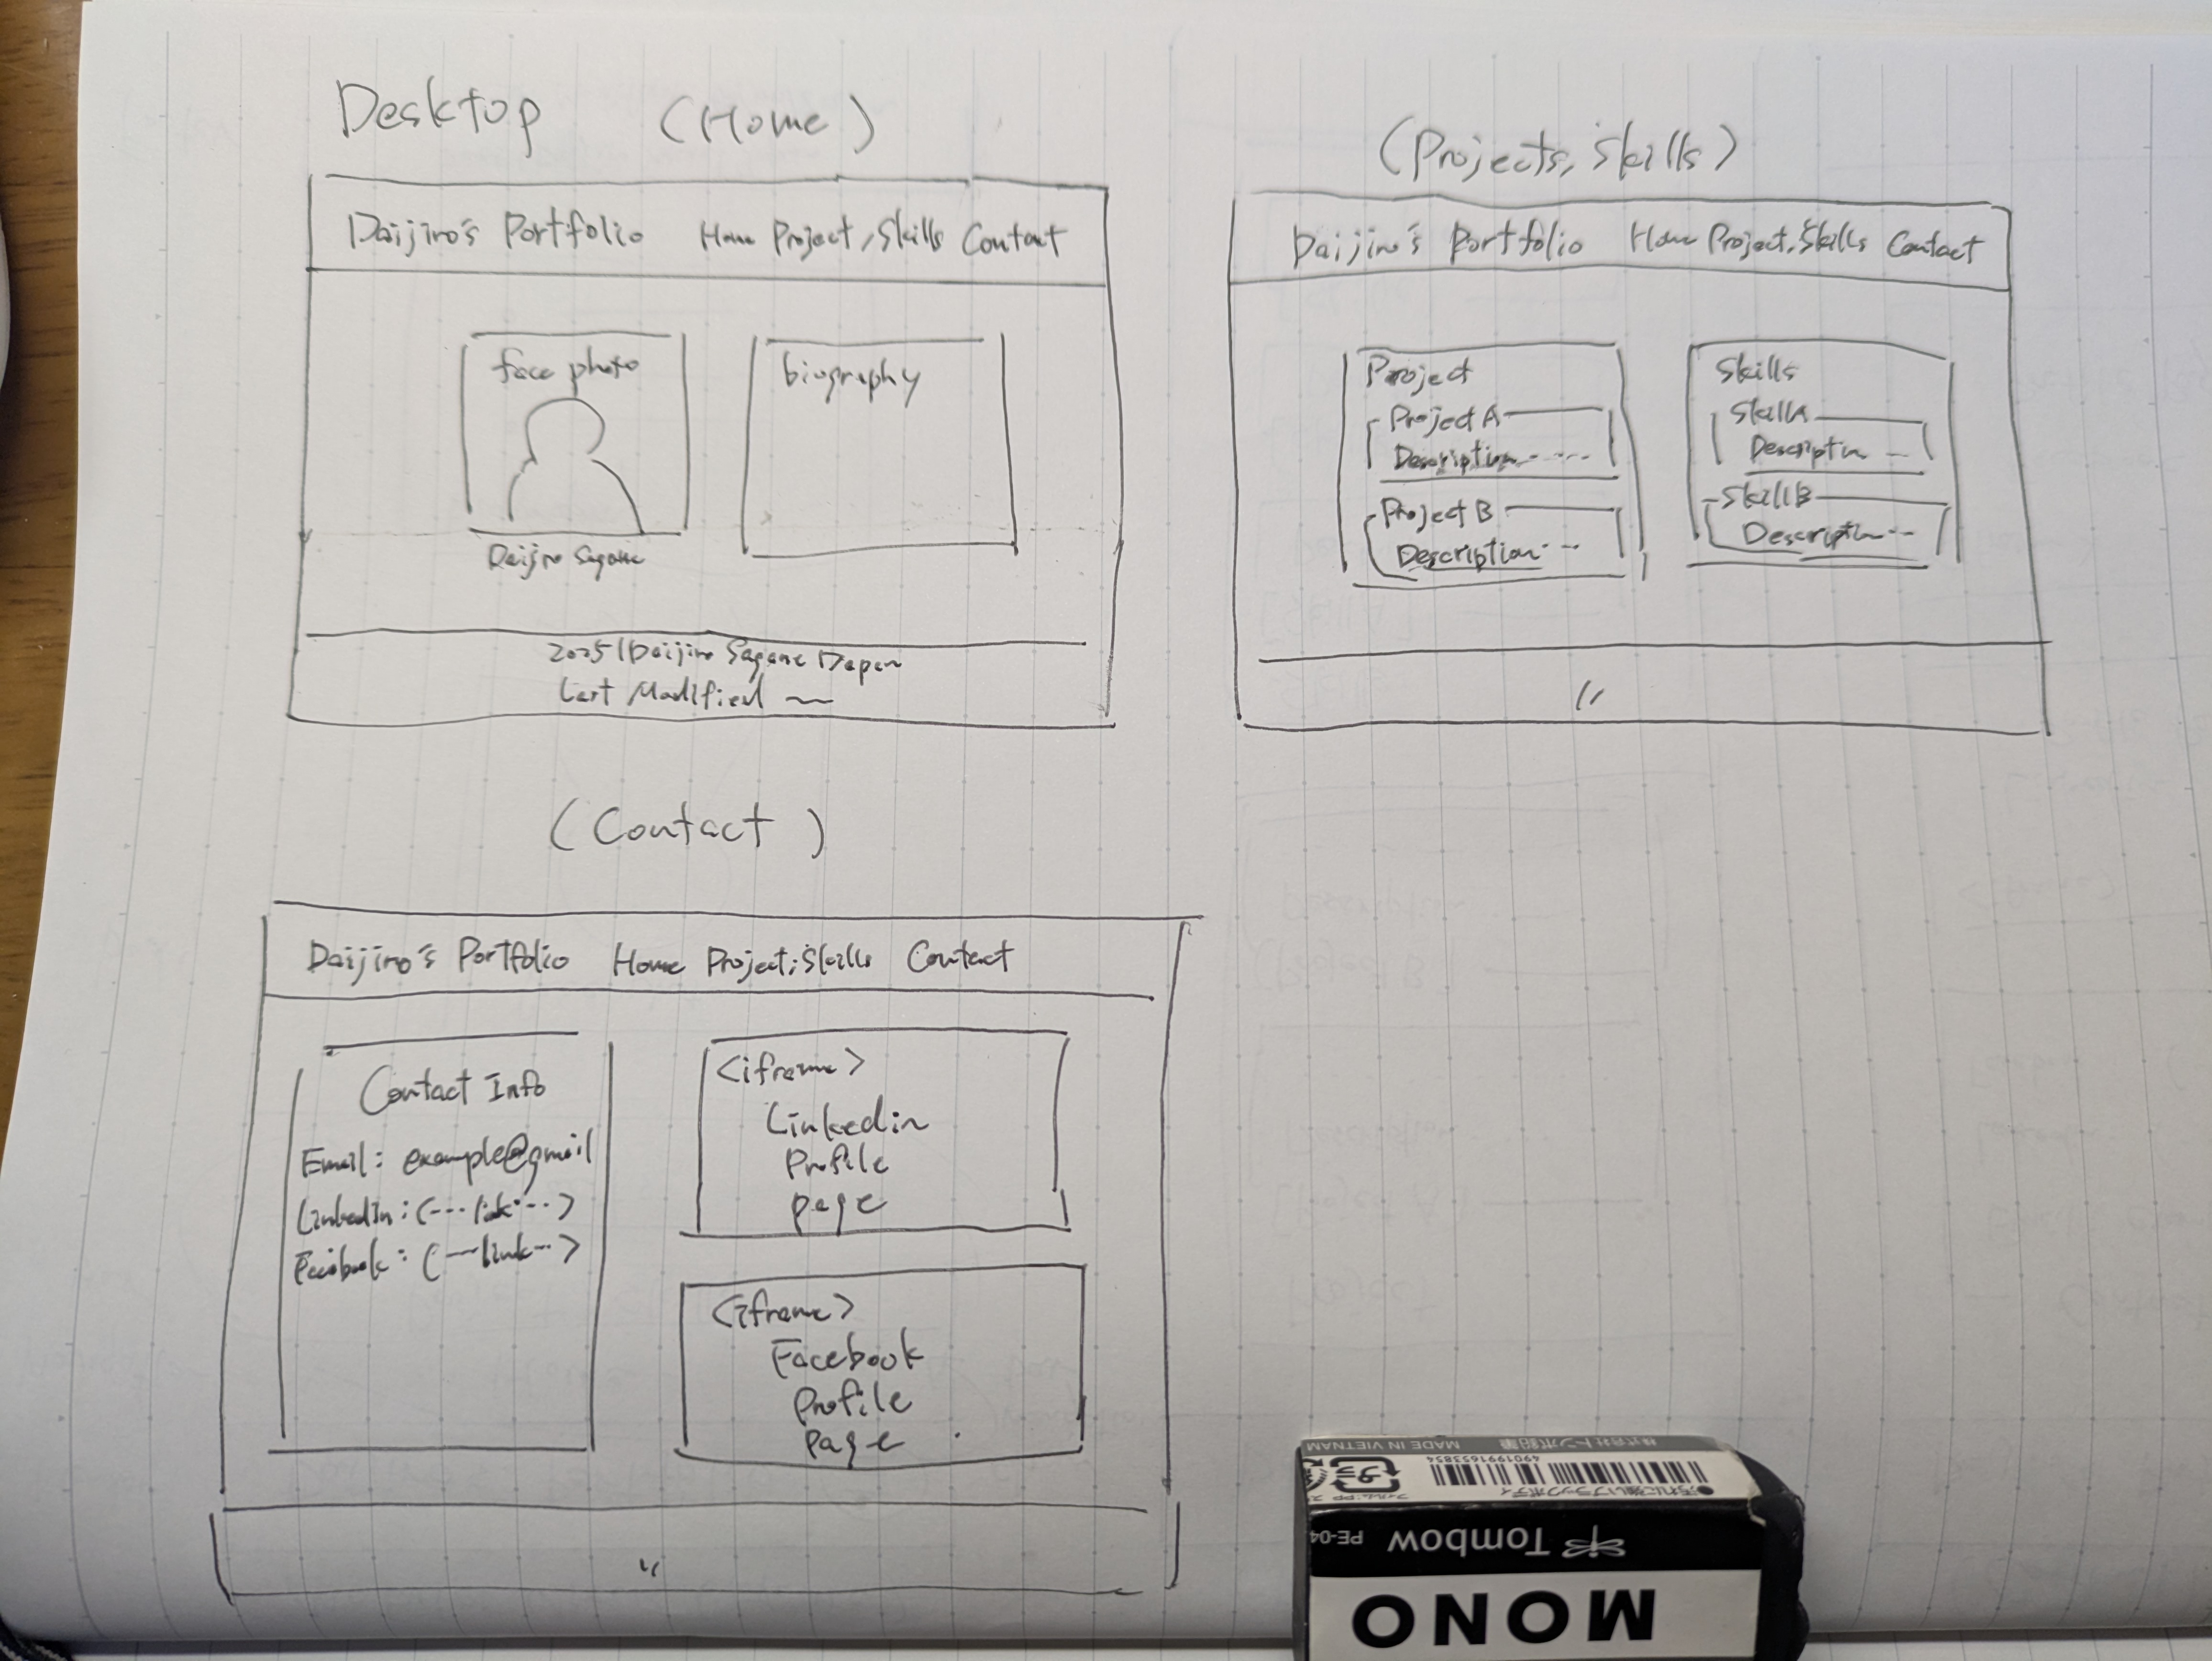 Desktop (Home)
Daijiro's Portfolio Home Project, Skills Contact
face photo
Daijiro Sagane
biography
2025 | Daijiro Sagane
Last Modified
(Projects, Skills)
Daijiro's Portfolio Home Project, Skills Contact
Project
Project A
Description
Project B
Description
Skills
Skill A
Description
Skill B
Description
〃
(Contact)
Daijiro's Portfolio Home Project, Skills Contact
Contact Info
Email: example@gmail
LinkedIn: (---link---)
Facibook: (---link---)
<iframe>
Linkedin
Profile
page
<iframe>
Facebook
Profile
page
〃
MADE IN VIETNAM 株式会社トンボ鉛筆
4901991653854
●汚れに強いブラックボディ
Tombow PE-04
MONO